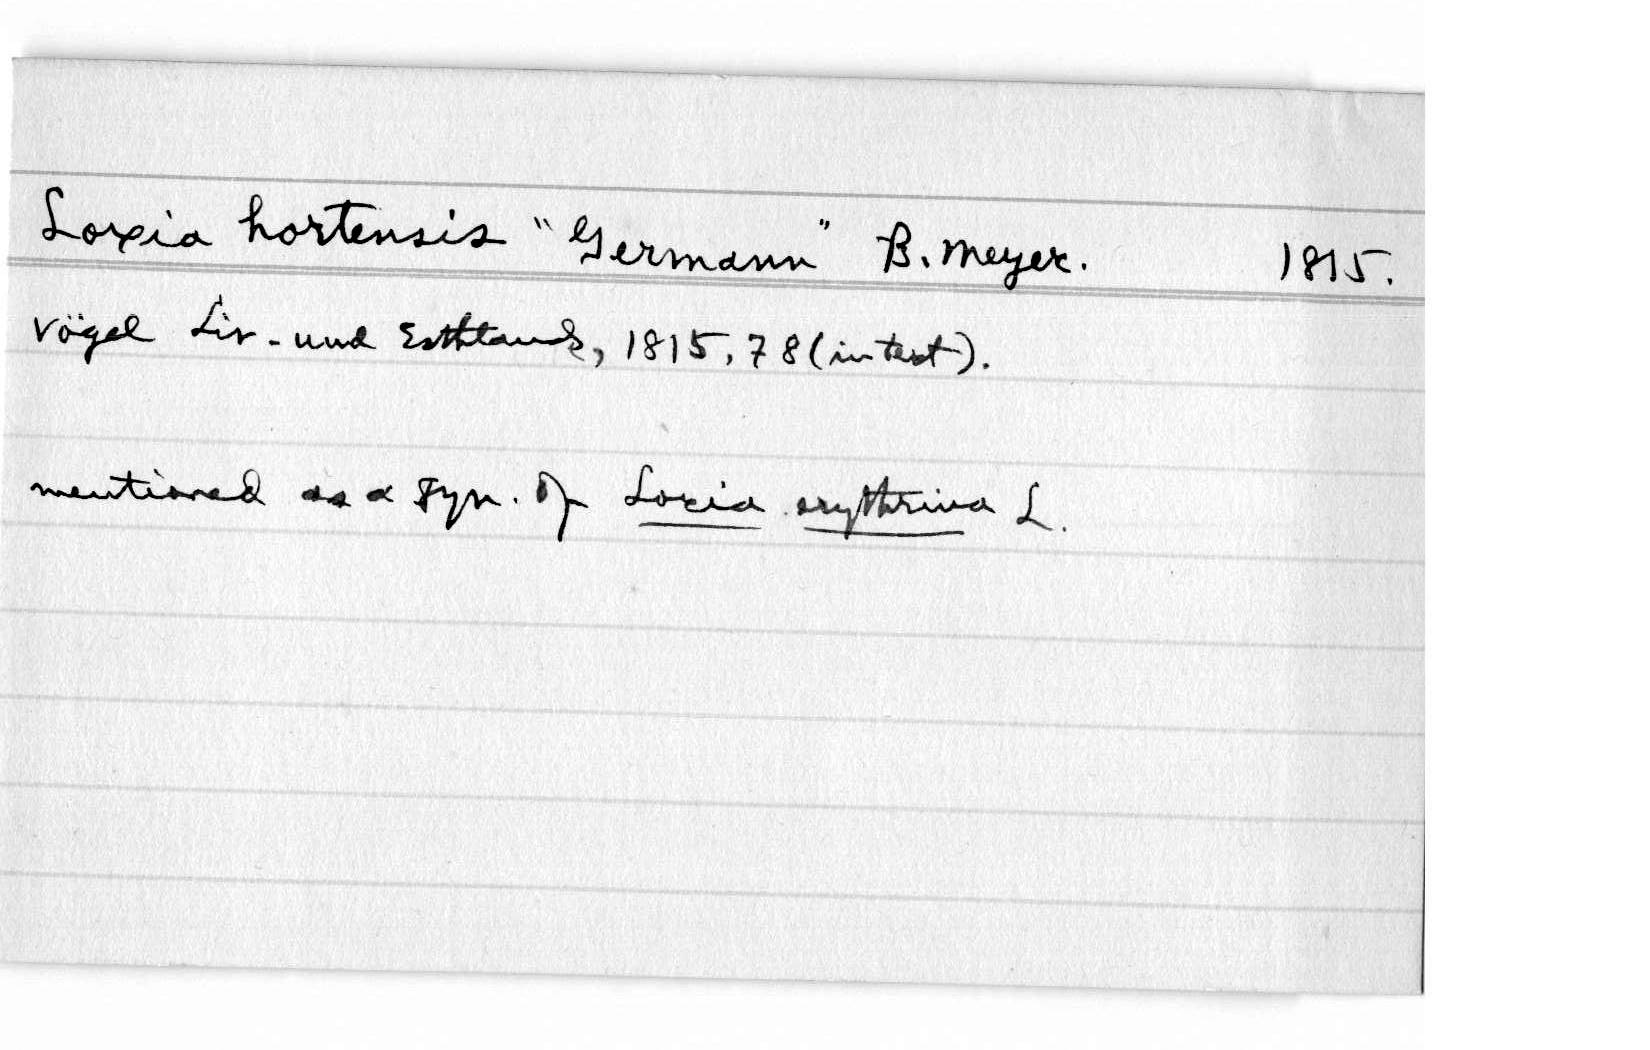 Loxia hortensis "Germann" B. Meyer. 1815.
Vögel Liv- und Esthlands, 1815, 78 (in text).
mentioned as a syn. of Loxia erythrina L.